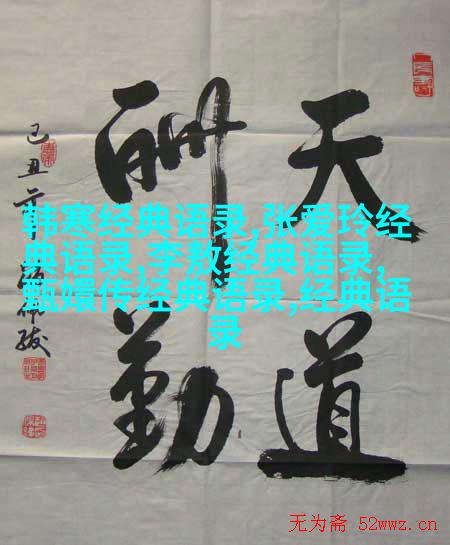 天道
酬勤
己丑
韩寒经典语录,张爱玲经
典语录,李敖经典语录,
甄嬛传经典语录,经典语
录
无为斋 52wwz.cn